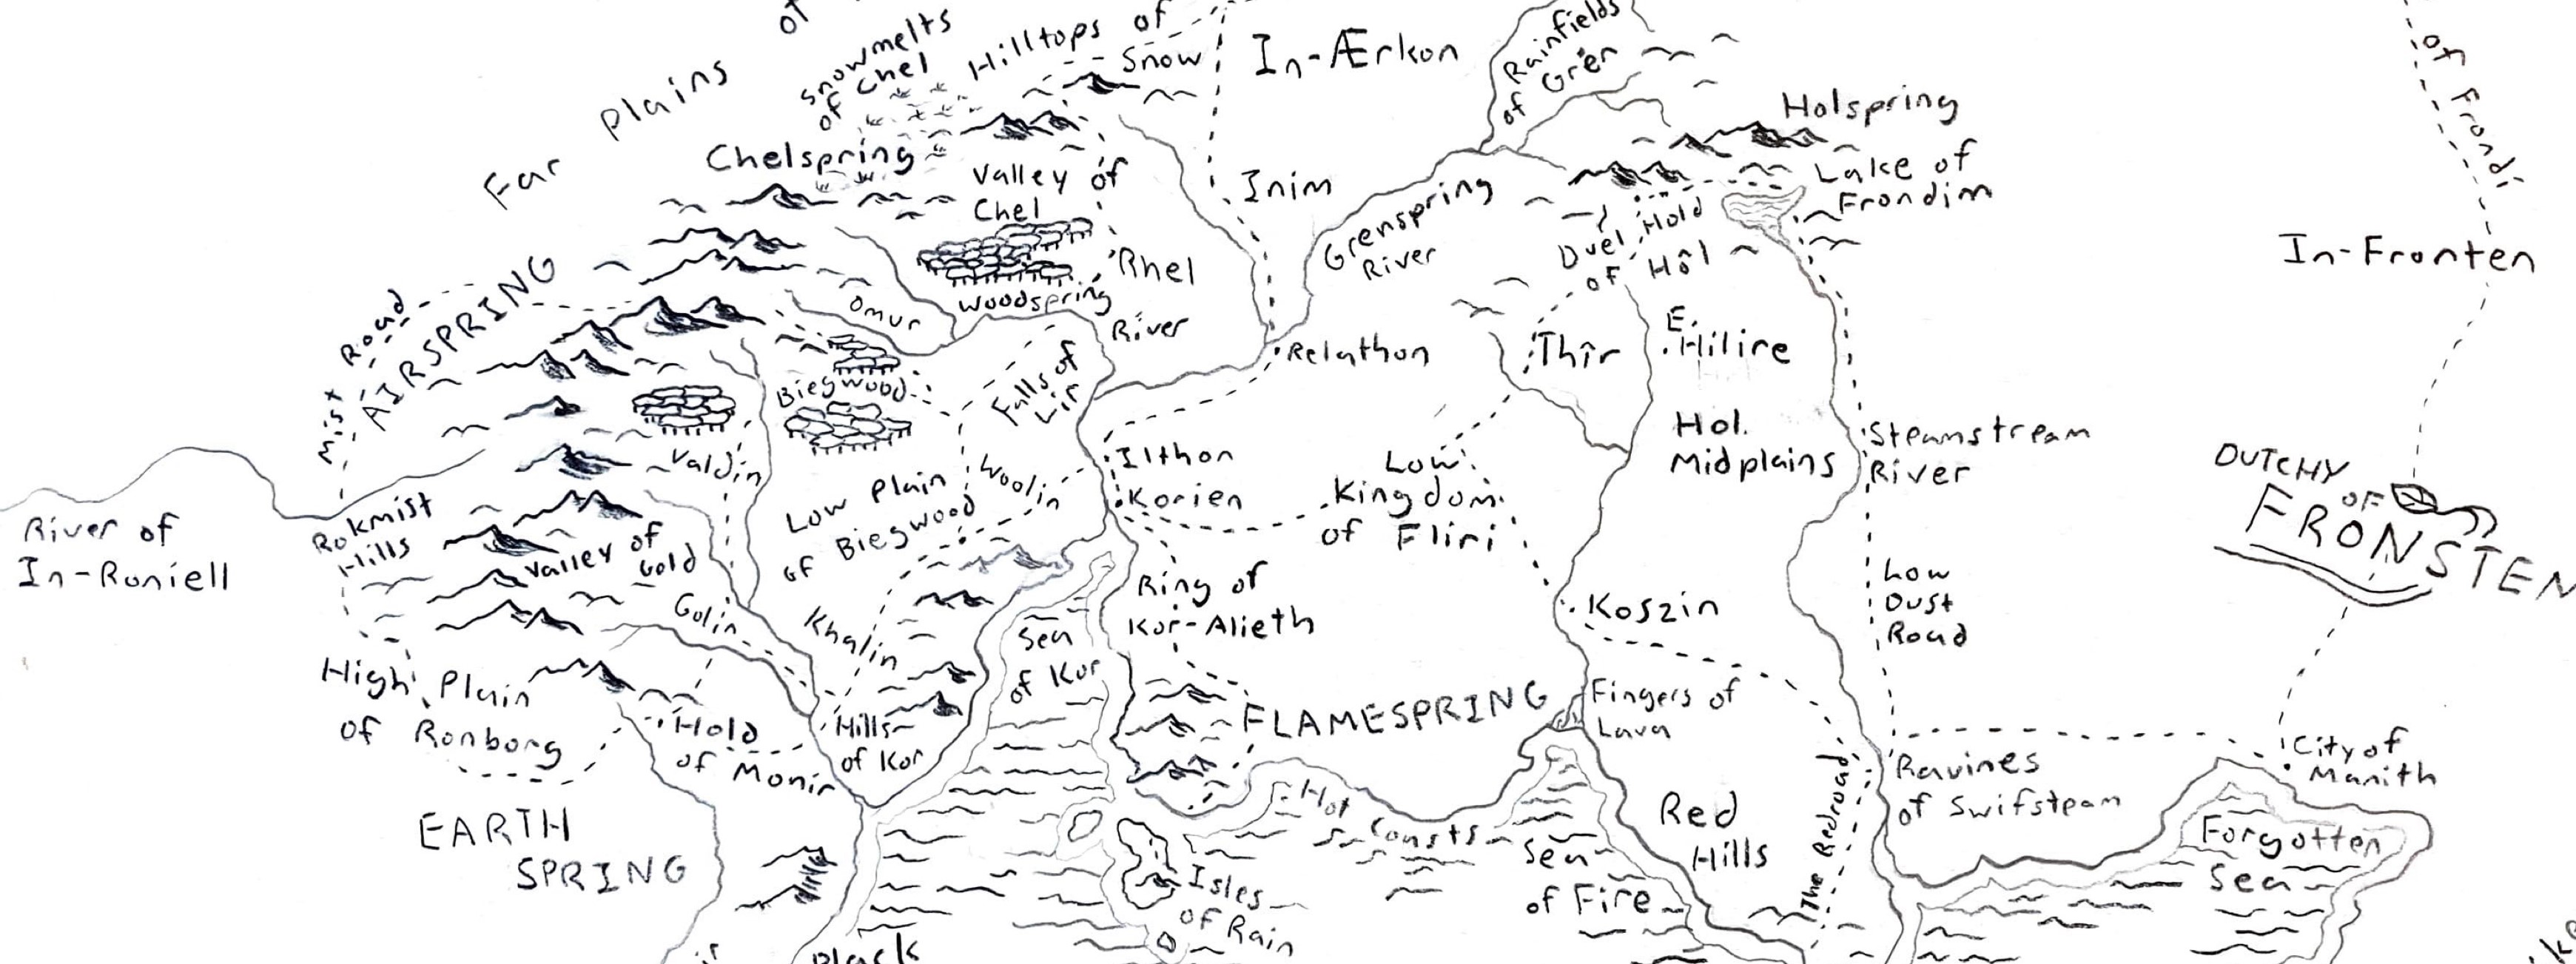 of
Snowmelts
of Chel
Hilltops of
Snow
In-Ærkon
Rainfields
of Grër
Holspring
Far Plains
Chelspring
Valley of
Chel
Inim
Grenspring
River
Lake of
Frondim
Duel Hold
of Hôl
In-Fronten
AIRSPRING
Mist Road
Omur
Woodspring
River
Rhel
Relathon
Thîr
E.
Hilire
Biegwood
Falls of
Lir
Valdin
Low Plain
of Biegwood
Woolin
Ilthon
Korien
Low
Kingdom
of Fliri
Hol.
Midplains
Steamstream
River
DUTCHY
OF
FRONSTEN
River of
In-Roniell
Rokmist
Hills
Valley of
Gold
Golin
Khalin
Sea
of Kor
Ring of
Kor-Alieth
Koszin
Low
Dust
Road
High Plain
of Ronborg
Hold
of Monir
Hills
of Kor
FLAMESPRING
Fingers of
Lava
Ravines
of Swifsteam
City of
Manith
EARTH
SPRING
Hot
Coasts
Isles
of Rain
Sea
of Fire
Red
Hills
The Redroad
Forgotten
Sea
Black